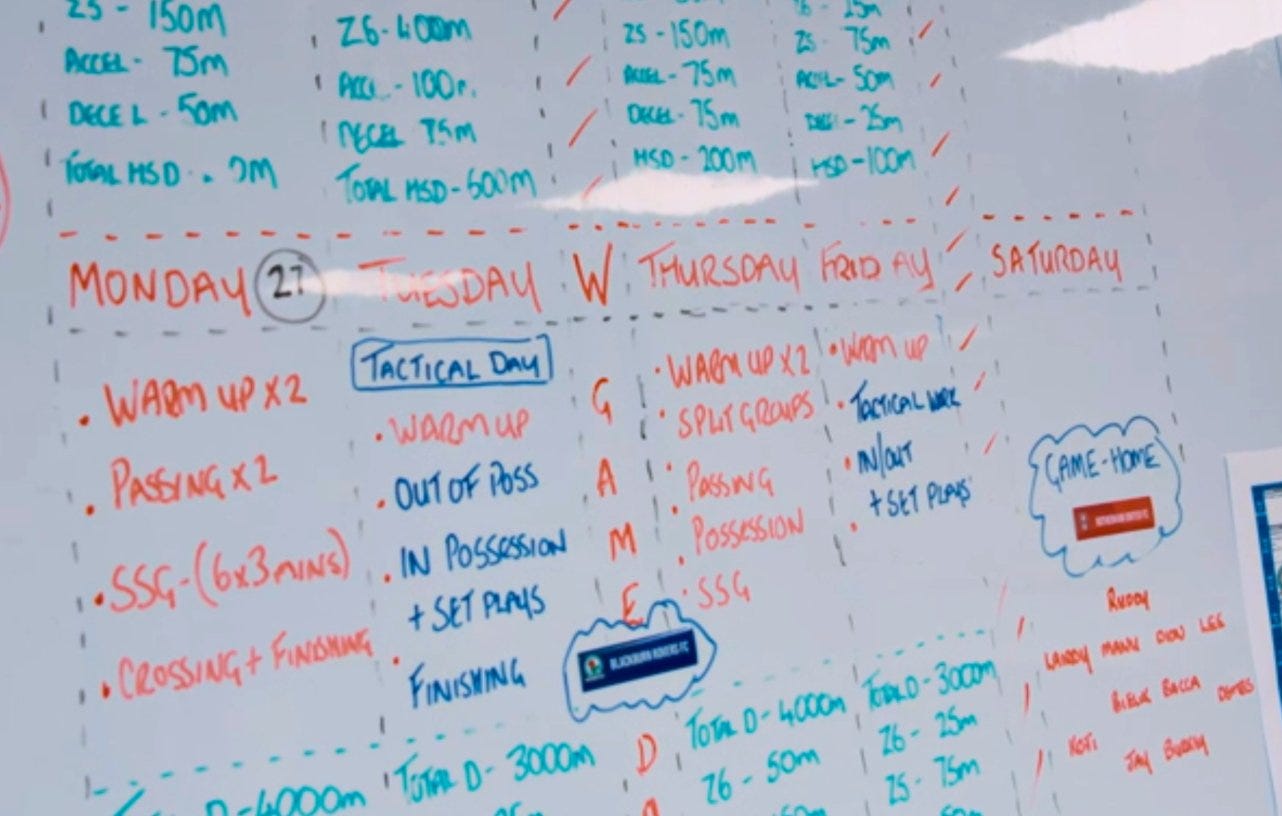 Z5 - 150m
ACCEL - 75m
DECEL - 50m
TOTAL HSD
Z6 - 400m
100
DECEL 75m
TOTAL HSD - 600m
Z5 - 150m
ACCEL - 75m
DECEL - 75m
HSD - 200m
25m
Z5 - 75m
ACCEL - 50m
- 25m
HSD - 100m
MONDAY 27
• WARM UP X2
• PASSING X2
• SSG - (6x3 MINS)
• CROSSING + FINISHING
D - 4000m
TUESDAY
TACTICAL DAY
• WARM UP
• OUT OF POSS
• IN POSSESSION
+ SET PLAYS
• FINISHING
TOTAL D - 3000m
W
G
A
M
E
BLACKBURN ROVERS FC
D
THURSDAY
• WARM UP X2
• SPLIT GROUPS
• PASSING
• POSSESSION
• SSG
TOTAL D - 4000m
Z6 - 50m
FRIDAY
• WARM UP
• TACTICAL WORK
• IN/OUT
+ SET PLAYS
TOTAL D - 3000m
Z6 - 25m
Z5 - 75m
SATURDAY
GAME - HOME
ROTHERHAM UNITED FC
RUDDY
MANN DION LEE
BACCA
JAY BUDDY